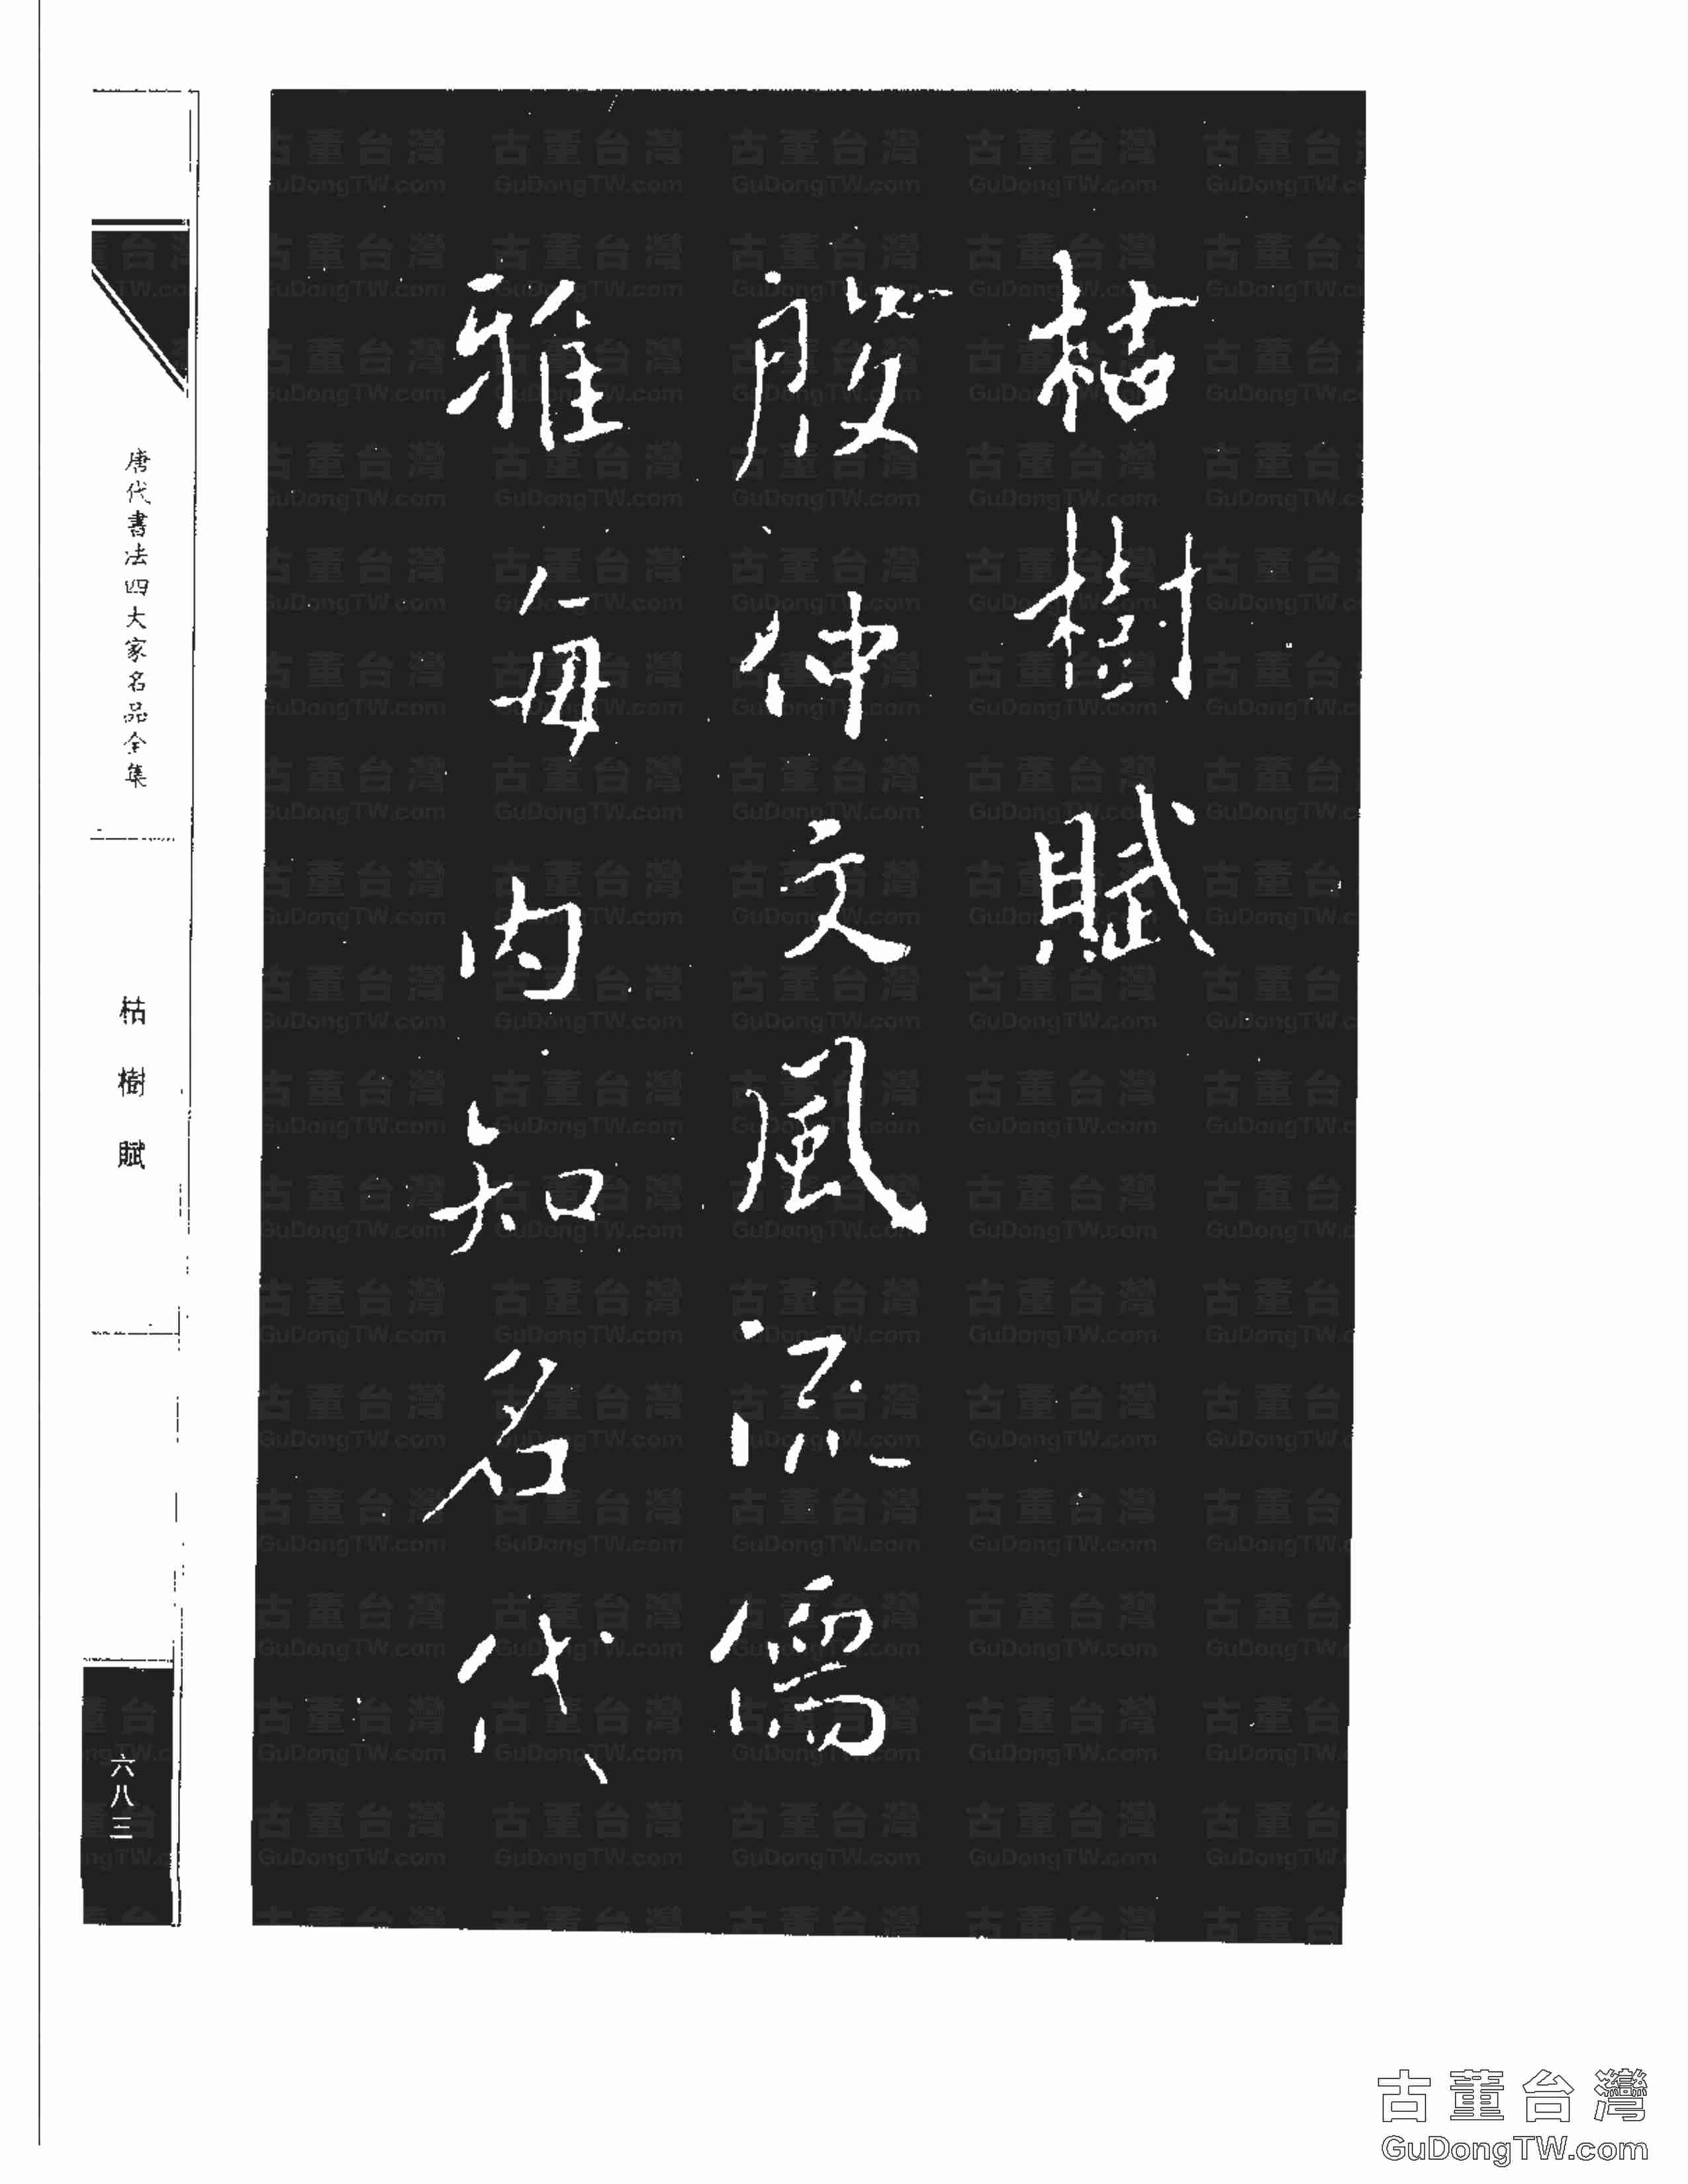 枯樹賦
殷仲文風流儒
雅每內知名代
唐代書法四大家名品全集
枯樹賦
六八三
古董台灣
GuDongTW.com